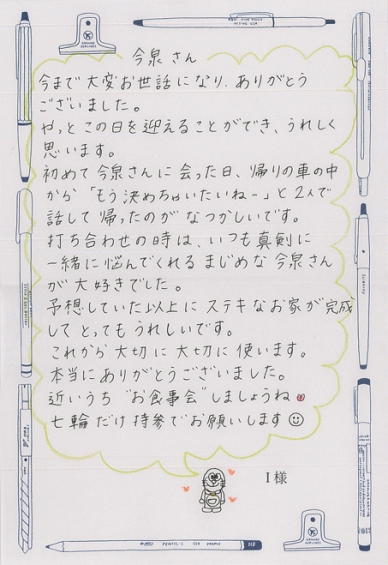 今泉さん
今まで大変お世話になり、ありがとう
ございました。
やっとこの日を迎えることができ、うれしく
思います。
初めて今泉さんに会った日、帰りの車の中
から「もう決めちゃいたいねー」と2人で
話して帰ったのがなつかしいです。
打ち合わせの時は、いつも真剣に
一緒に悩んでくれるまじめな今泉さん
が大好きでした。
予想していた以上にステキなお家が完成
してとってもうれしいです。
これから大切に大切に使います。
本当にありがとうございました。
近いうち"お食事会"しましょうね
七輪だけ持参でお願いします
I様